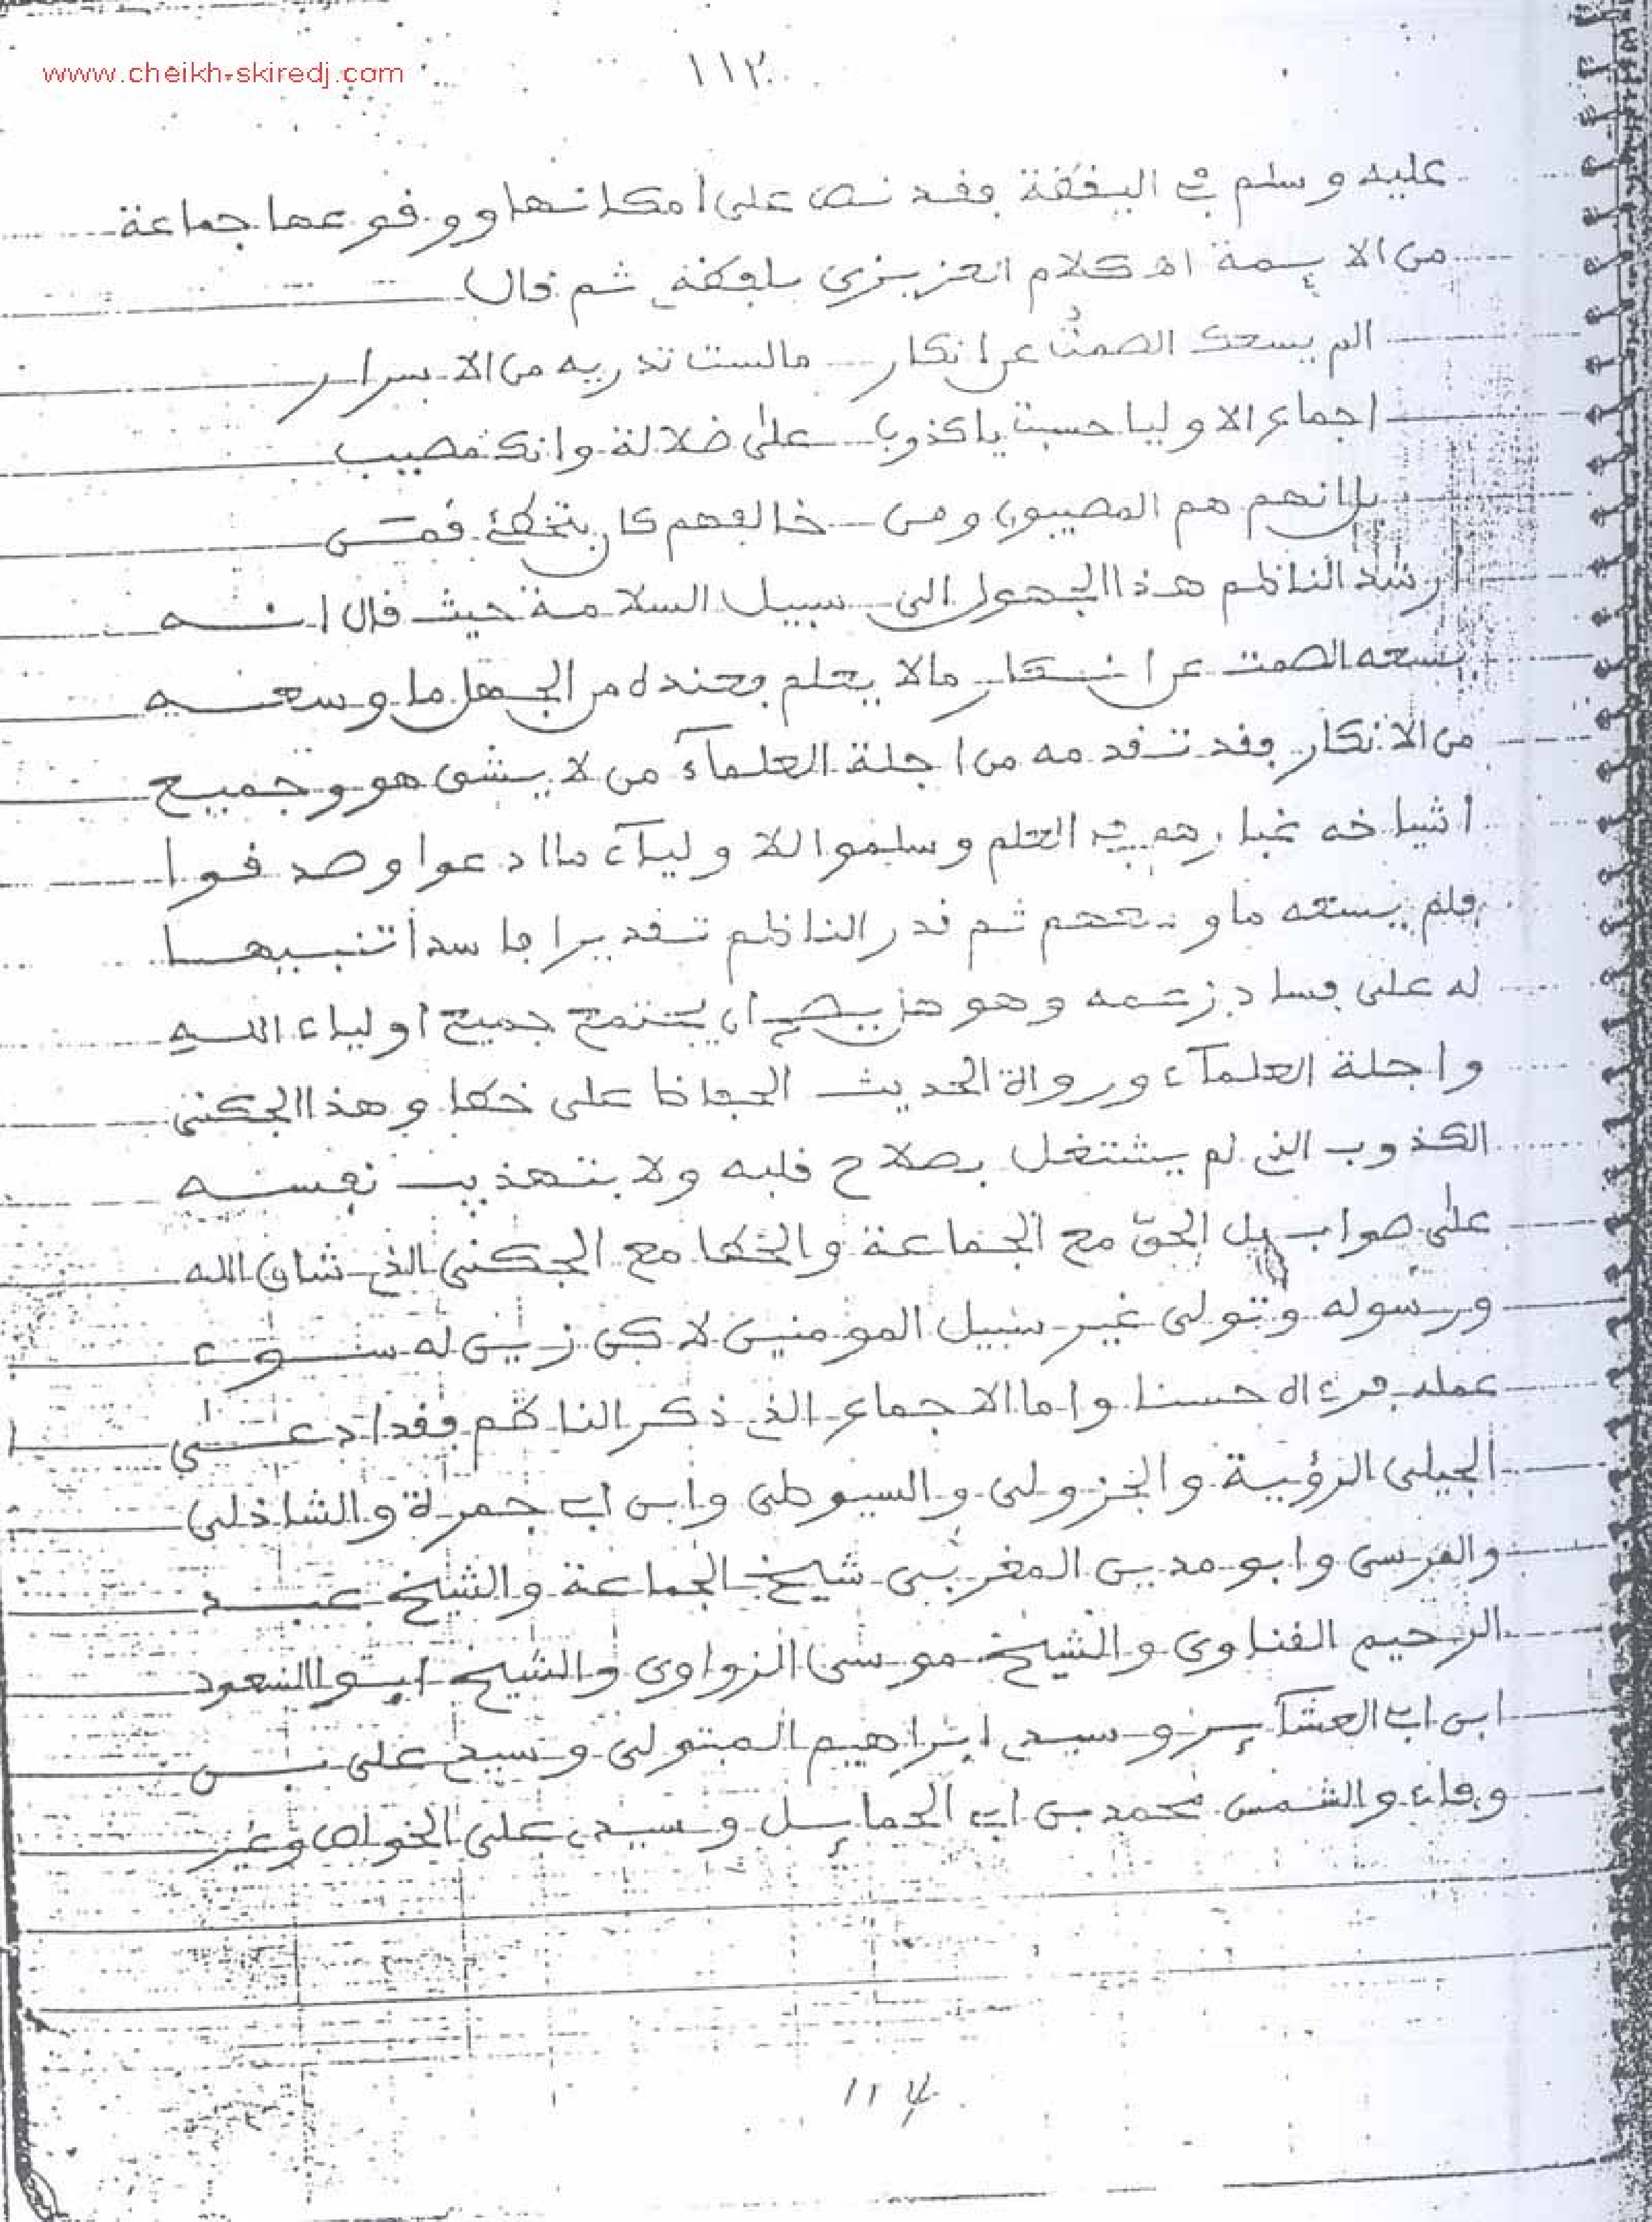 www.cheikh-skiredj.com
١١٣
عليه وسلم في اليقظة فقد نص على امكانها ووقوعها جماعة
من الايمة اه كلام العزيزي بلفظه ثم قال
الم يسعك الصمت عن انكار ما لست تدريه من الاسرار
اجماع الاوليا حسبت يا كذوب على ضلالة وانك مصيب
بل انهم هم المصيبون ومن خالفهم كان بتخطئ قمن
ارشد الناظم هذا الجهول الى سبيل السلامة حيث قال انه
يسعه الصمت عن انكار ما لا يعلم فعنده من الجهل ما وسعه
من الانكار فقد تقدمه من اجلة العلمآء من لا يشق هو وجميع
اشياخه غبارهم في العلم وسلموا للاوليآء ما ادعوا وصدقوا
فلم يسعه ما وسعهم ثم قدر الناظم تقديرا فاسدا تنبيها
له على فساد زعمه وهو هل يصح ان يجتمع جميع اولياء الله
واجلة العلمآء ورواة الحديث الحفاظ على خطا وهذا الجكني
الكذوب الذي لم يشتغل بصلاح قلبه ولا بتهذيب نفسه
على صواب بل الحق مع الجماعة والخطا مع الجكني الذي شاق الله
ورسوله وتولى غير سبيل المومنين لاكن زين له سوء
عمله فرءاه حسنا واما الاجماع الذي ذكر الناظم فقد ادعى
الجيلي الرؤية والجزولي والسيوطي وابن ابي جمرة والشاذلي
والمرسي وابو مدين المغربي شيخ الجماعة والشيخ عبد
الرحيم القناوي والشيخ موسى الزواوي والشيخ ابو السعود
ابن ابي العشائر وسيدي ابراهيم المتبولي وسيدي علي بن
وفاء والشمس محمد بن ابي الحمايل وسيدي علي الخواص وغير
١١٤